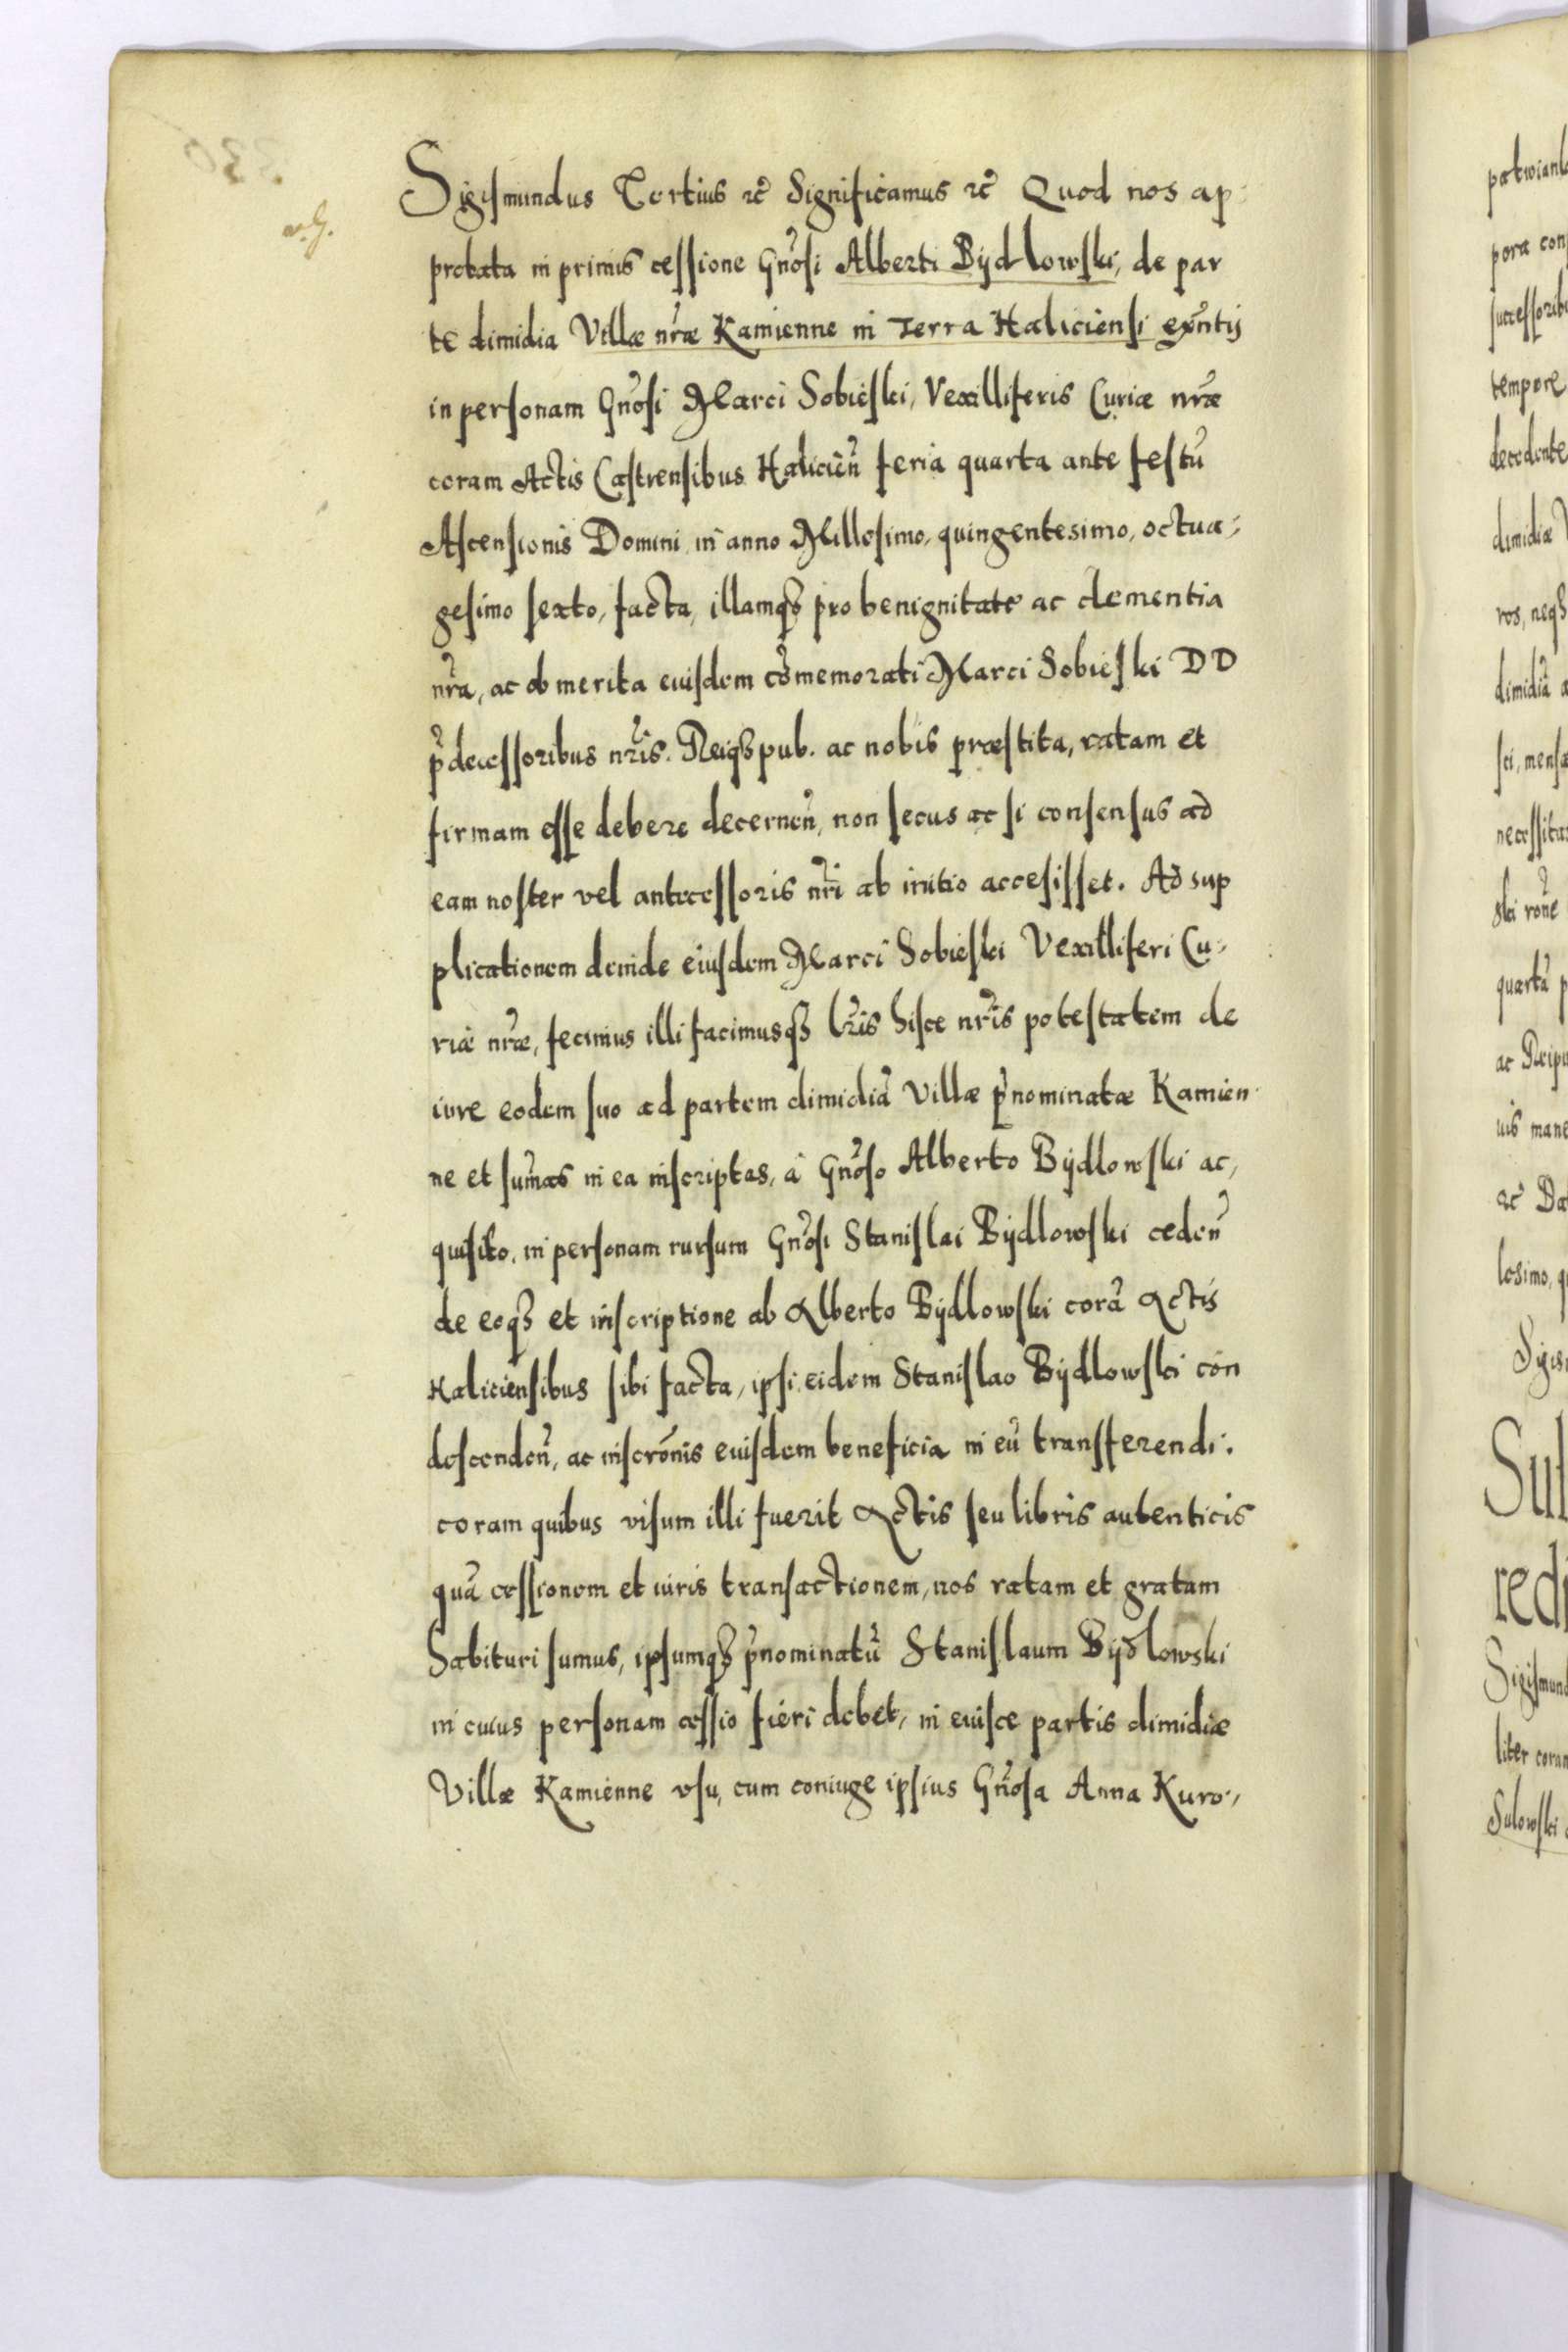 Sigismundus Tertius etc̃ Significamus etc̃ Quod nos ap-
probata in primis cessione Gnõsi Alberti Bÿdlowski, de par
te dimidia Villæ nr̃æ Kamienne in Terra Haliciensi exñtis
in personam Gnõsi Marci Sobieski, Vexilliferis Curiæ nr̃æ
coram Actis Castrensibus Halicieñ feria quarta ante festũ
Ascensionis Domini in anno Millesimo, quingentesimo, octua-
gesimo sexto, facta, illamq3 pro benignitate ac clementia
nr̃a, ac ob merita eiusdem cõmemorati Marci Sobieski DD
p̃decessoribus nr̃is. Reiq3pub. ac nobis præstita, ratam et
firmam esse debere decerneñ, non secus ac si consensus ad
eam noster vel antecessoris nr̃i ab initio accesisset. Ad sup
plicationem deinde eiusdem Marci Sobieski Vexilliferi Cu-
riæ nr̃æ, fecimus illi facimusq3 lr̃is hisce nr̃is potestatem de
iure eodem suo ad partem dimidiã Villæ p̃nominatæ Kamien-
ne et sum̃as in ea inscriptas, à Gnõso Alberto Bÿdlowski ac,
quisito, in personam rursum Gnõsi Stanislai Bÿdlowski cedeñ
de eoq3 et inscriptione ab Alberto Bÿdlowski corã Actis
Haliciensibus sibi facta, ipsi eidem Stanislao Bÿdlowski con
descendeñ, ac inscrõnis eiusdem beneficia in eũ transferendi.
coram quibus visum illi fuerit Actis seu libris autenticis
quã cessionem et iuris transactionem, nos ratam et gratam
habituri sumus, ipsumq3 p̃nominatũ Stanislaum Bÿdlowski
in cuius personam cessio fieri debet, in eiusce partis dimidiæ
Villæ Kamienne vsu, cum coniuge ipsius Gnõsa Anna Kuro-